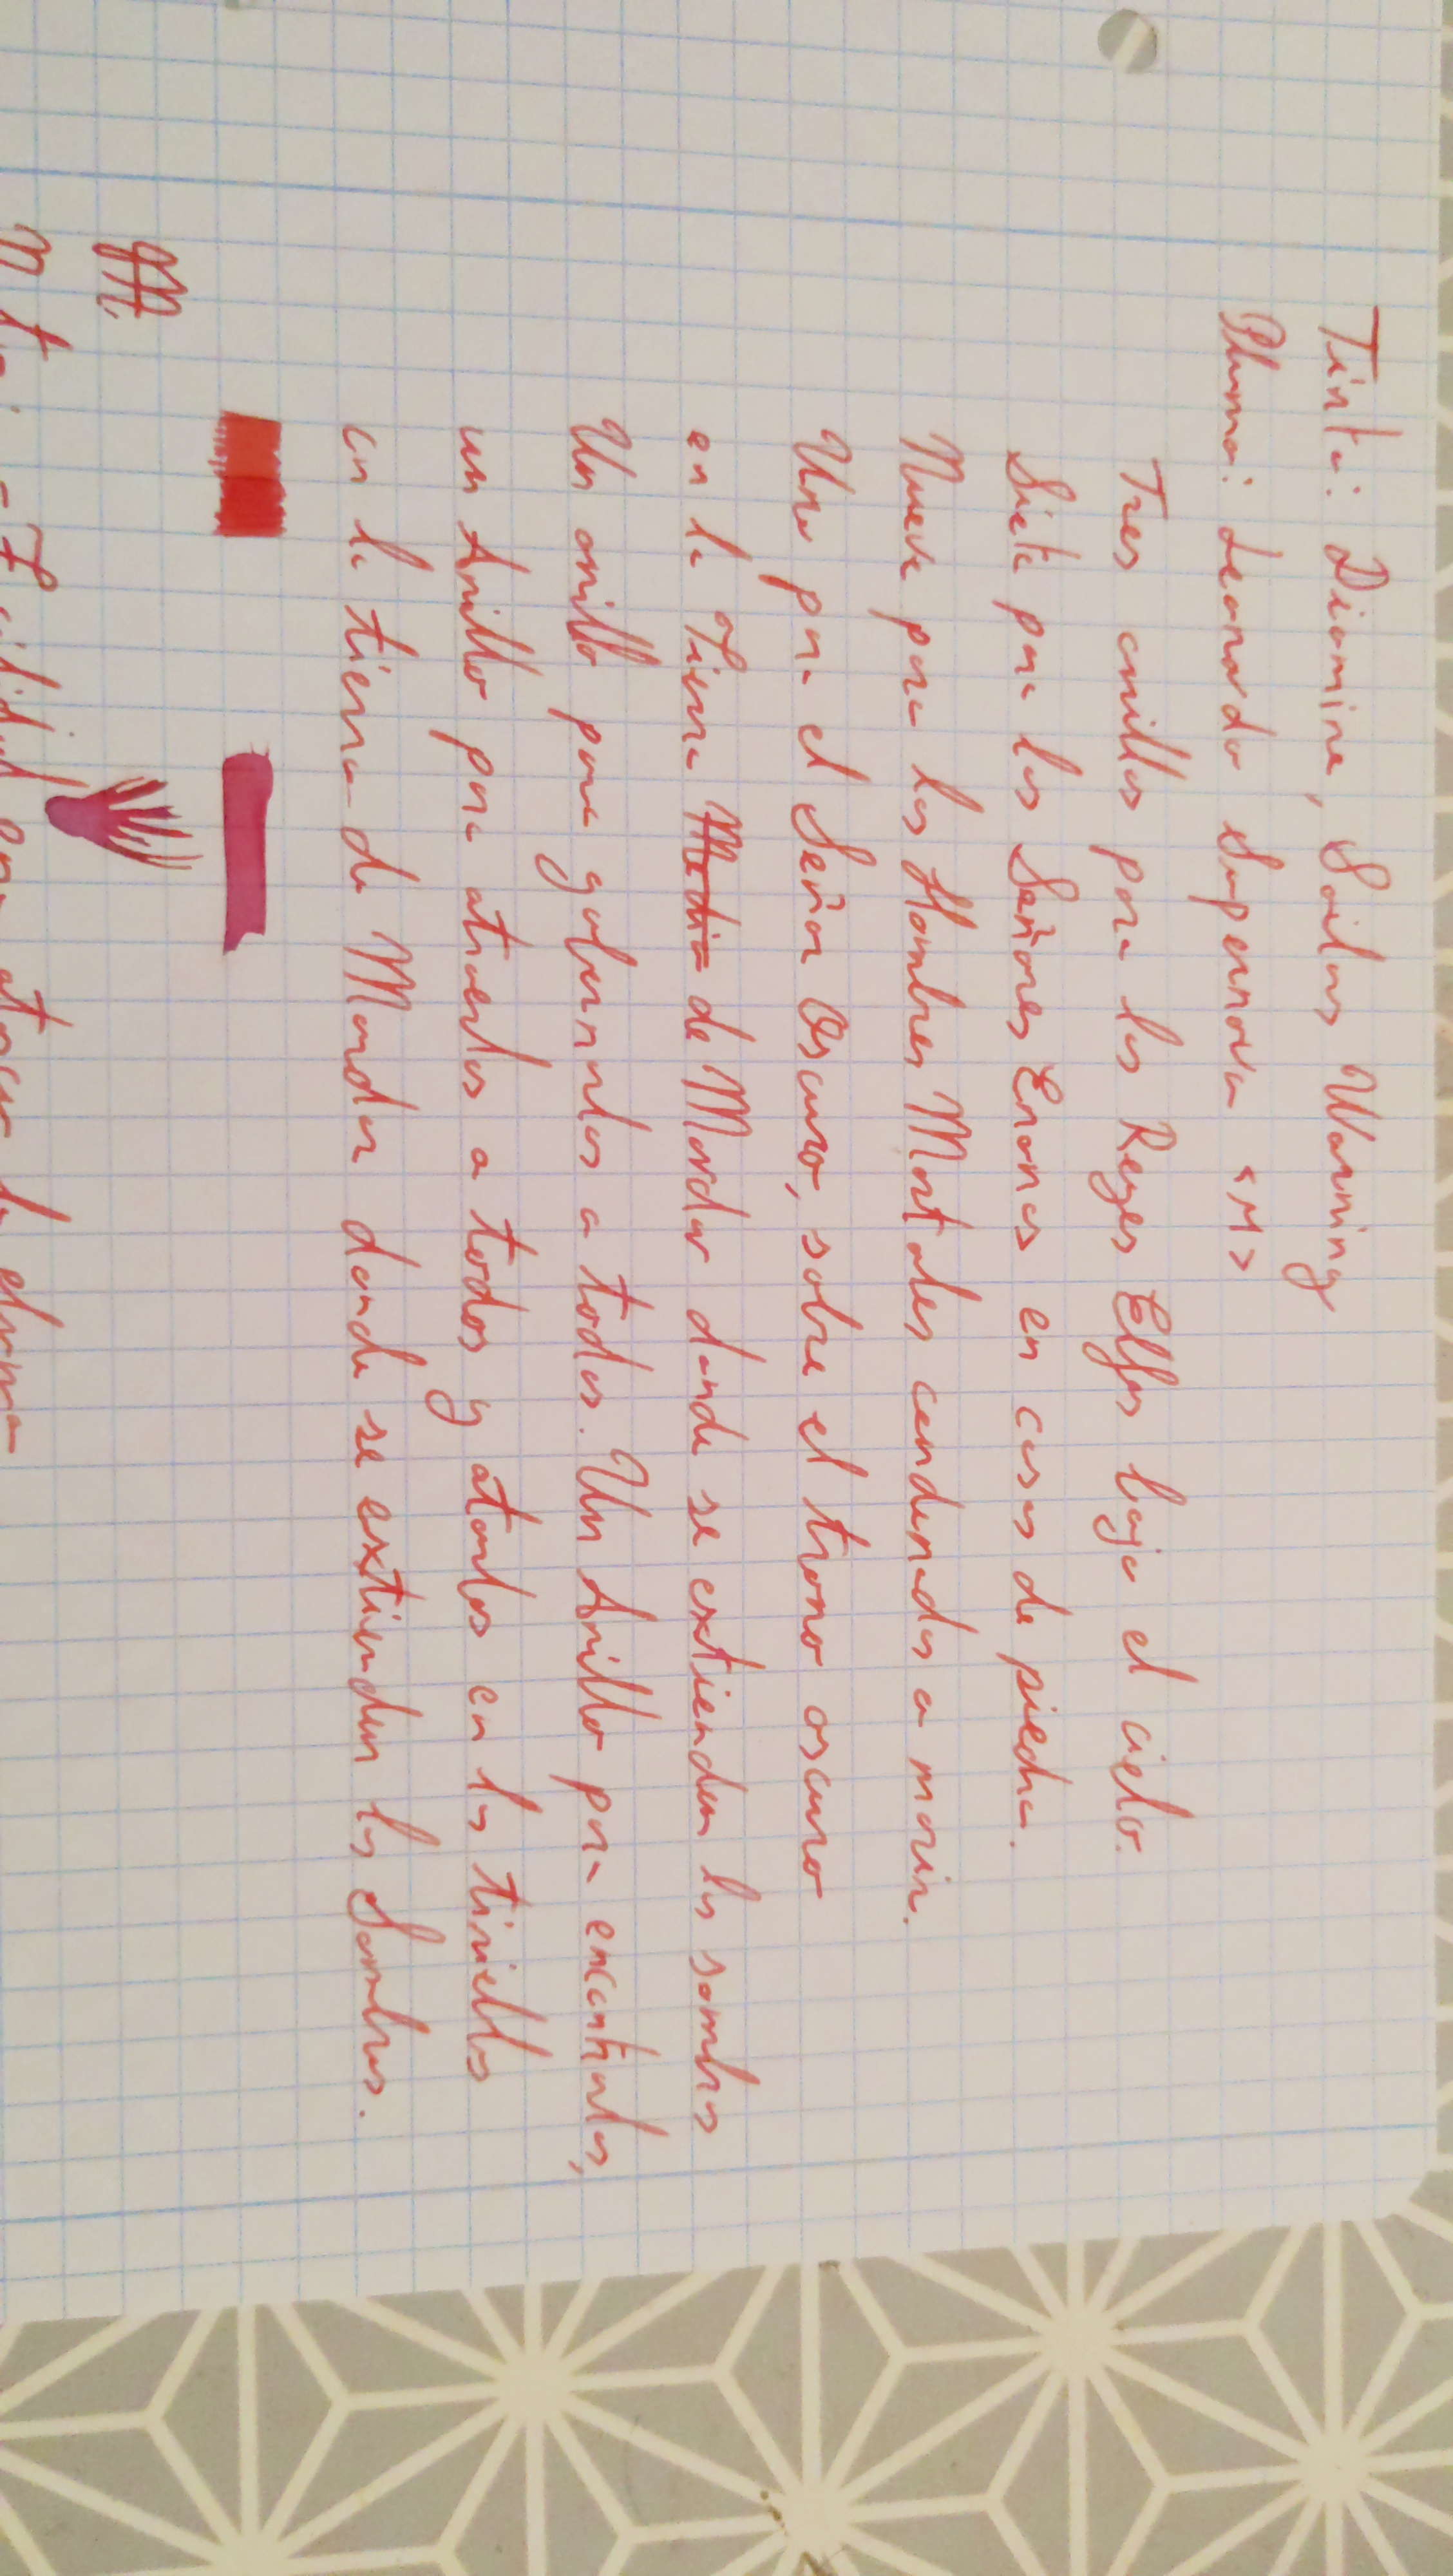 Tinta: Diamine, Sailors Warning
Pluma: Leonardo Supernova <M>
Tres anillos para los Reyes Elfos bajo el cielo.
Siete para los Señores Enanos en casas de piedra.
Nueve para los Hombres Mortales condenados a morir.
Uno para el Señor Oscuro, sobre el trono oscuro
en la Tierra Media de Mordor donde se extienden las sombras
Un anillo para gobernarlos a todos. Un Anillo para encontrarlos,
un Anillo para atraerlos a todos y atarlos en las tinieblas
en la tierra de Mordor donde se extienden las Sombras.